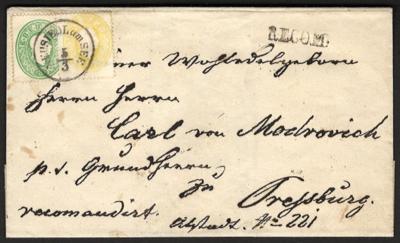 NEUSIEDL am SEE
5/3
RECOM:
Seiner Wohledelgeboren
Herrn Herrn
Carl von Modrovich
p. t. Grundherrn,
zu
Pressburg.
recomandirt.
Altstadt. No 221